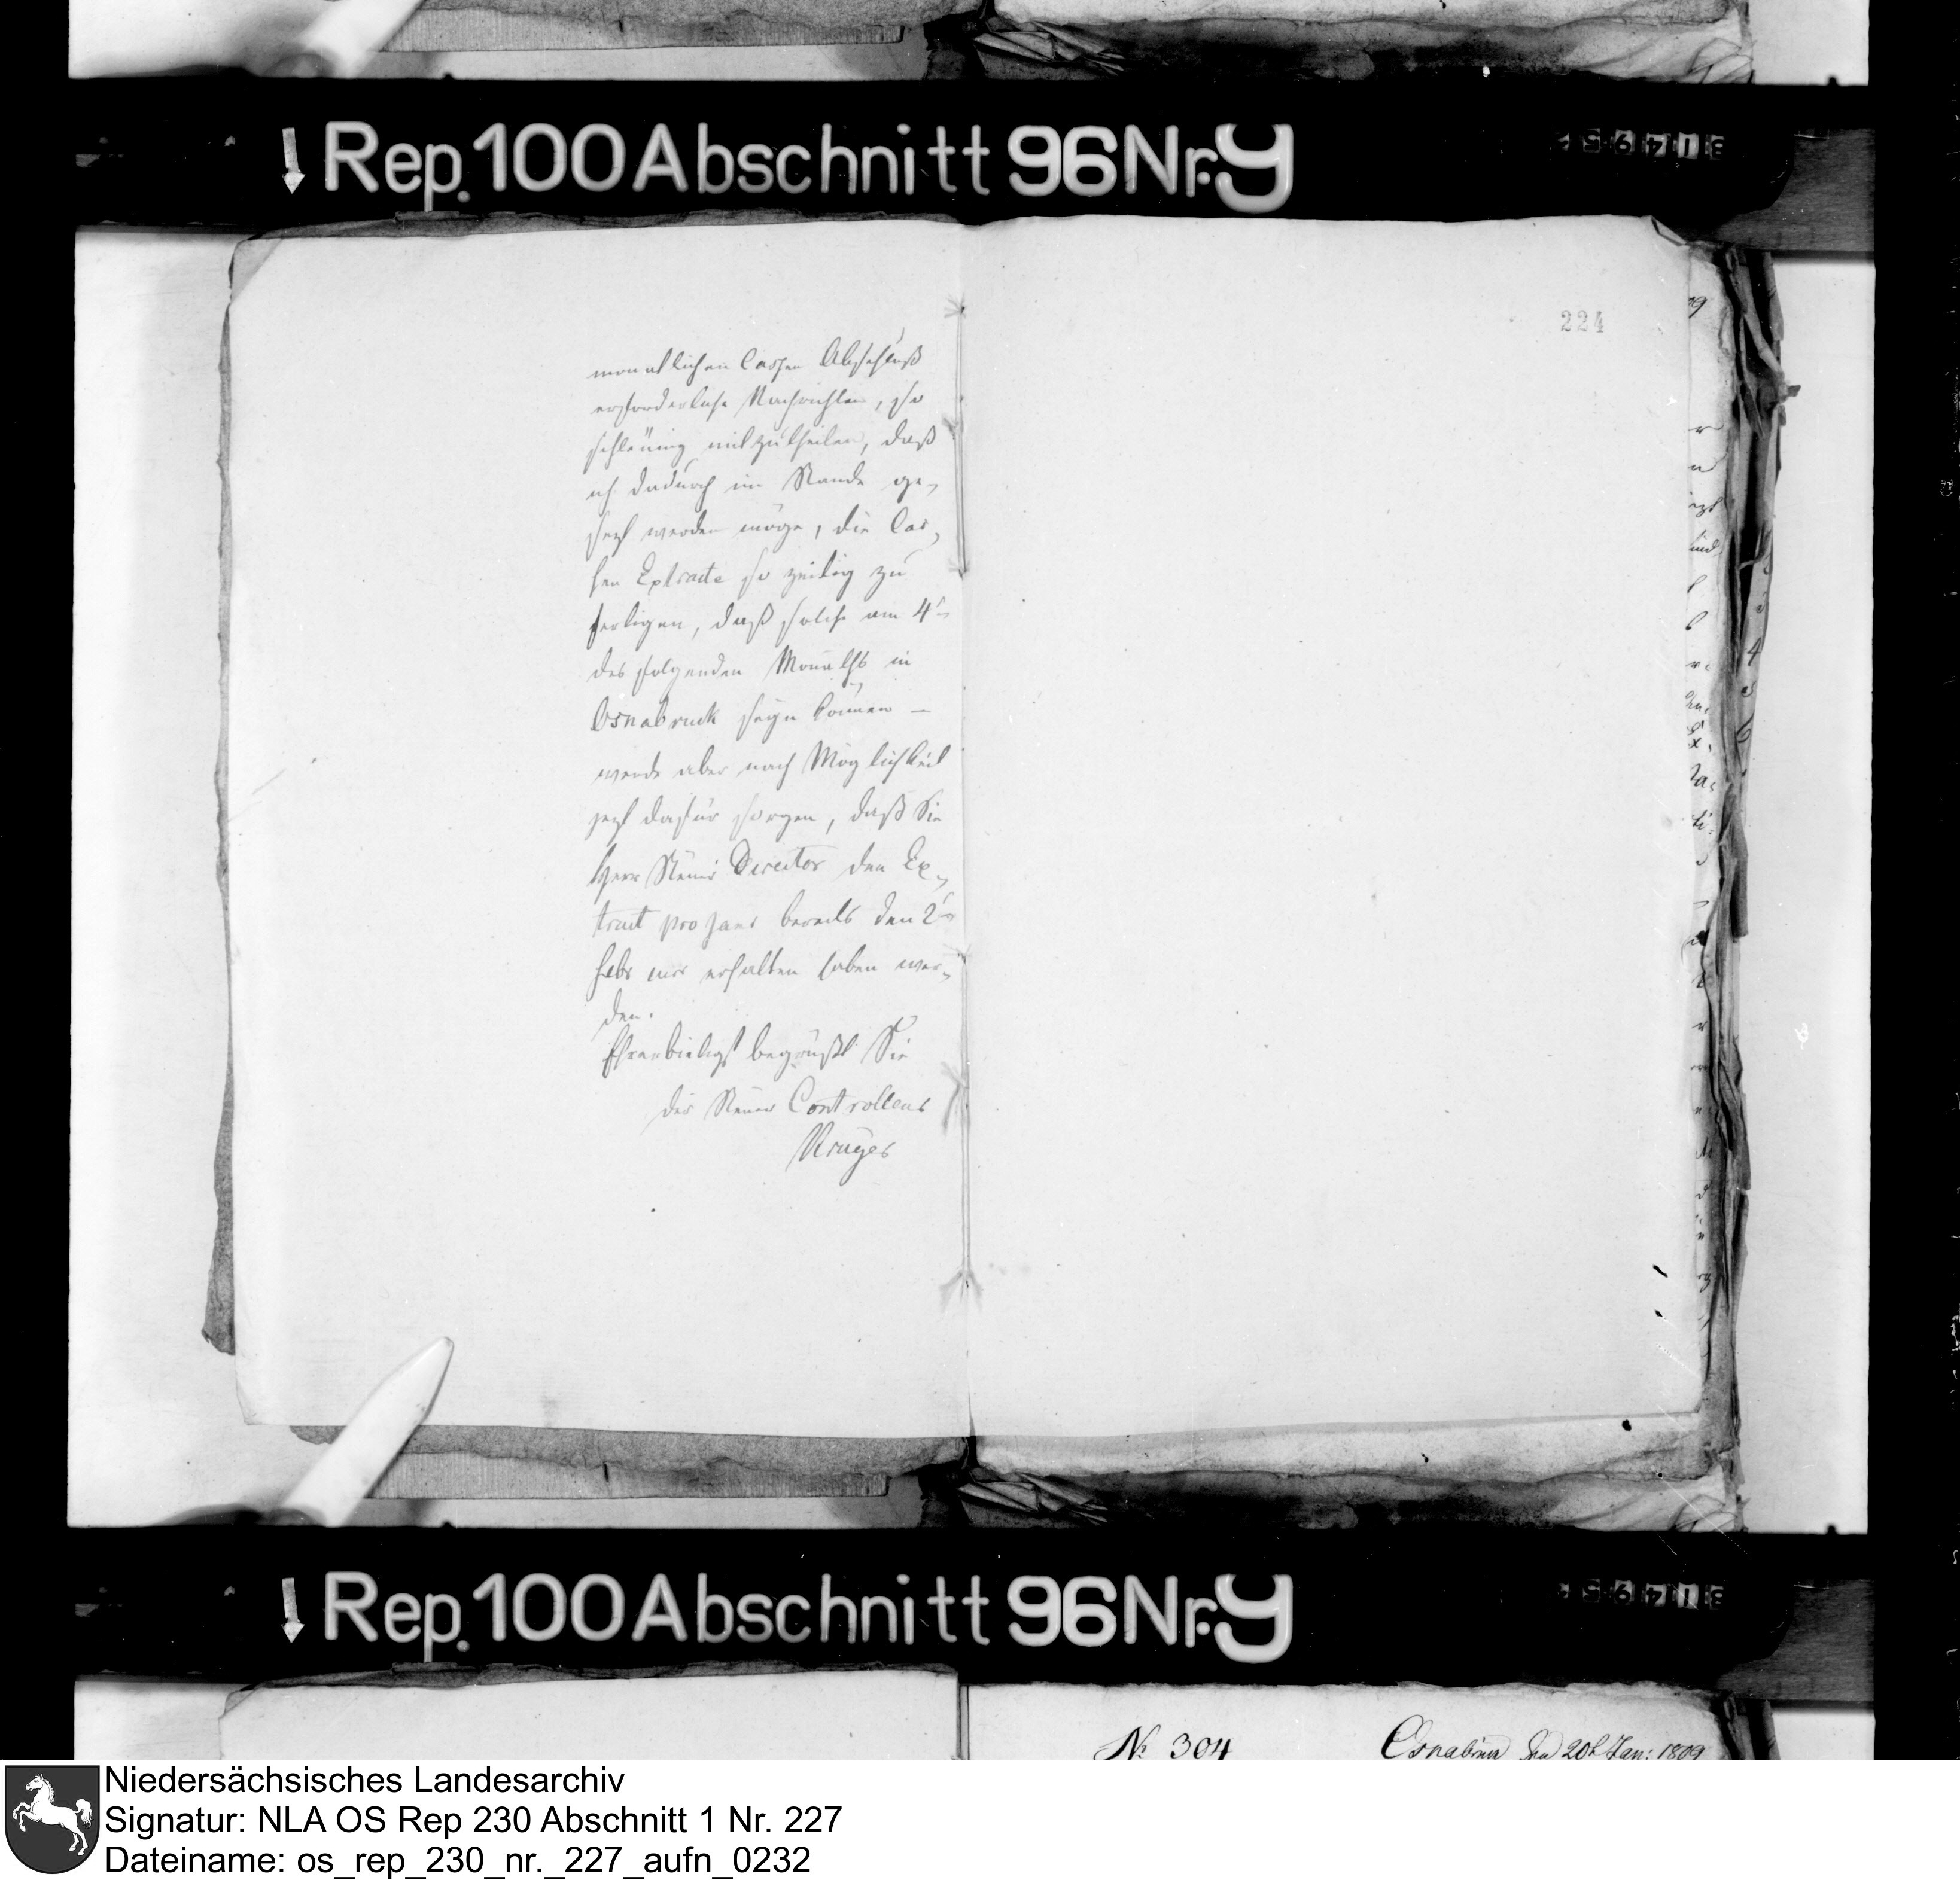 ↓ Rep. 100 Abschnitt 96 Nr. 9
224
monatlichen Cassen Abschluß
erforderliche Nachrichten, so
schleünig mitzutheilen, daß
ich dadurch im Stande ge-
sezt werden möge, die Cas-
sen Extracte so zeitig zu
fertigen, daß solche am 4t
des folgenden Monaths in
Osnabruck seyn können —
werde aber nach Möglichkeit
jezt dafür sorgen, daß Sie
Herr Steuer Director den Ex-
tract pro Januar bereits den 2t
Febr erhalten haben wer-
den.
Ehrerbietigst begrüßt Sie
der Steuer Controlleur
Kruger
↓ Rep. 100 Abschnitt 96 Nr. 9
No 304
Osnabrück den 20t Jan: 1809
Niedersächsisches Landesarchiv
Signatur: NLA OS Rep 230 Abschnitt 1 Nr. 227
Dateiname: os_rep_230_nr._227_aufn_0232